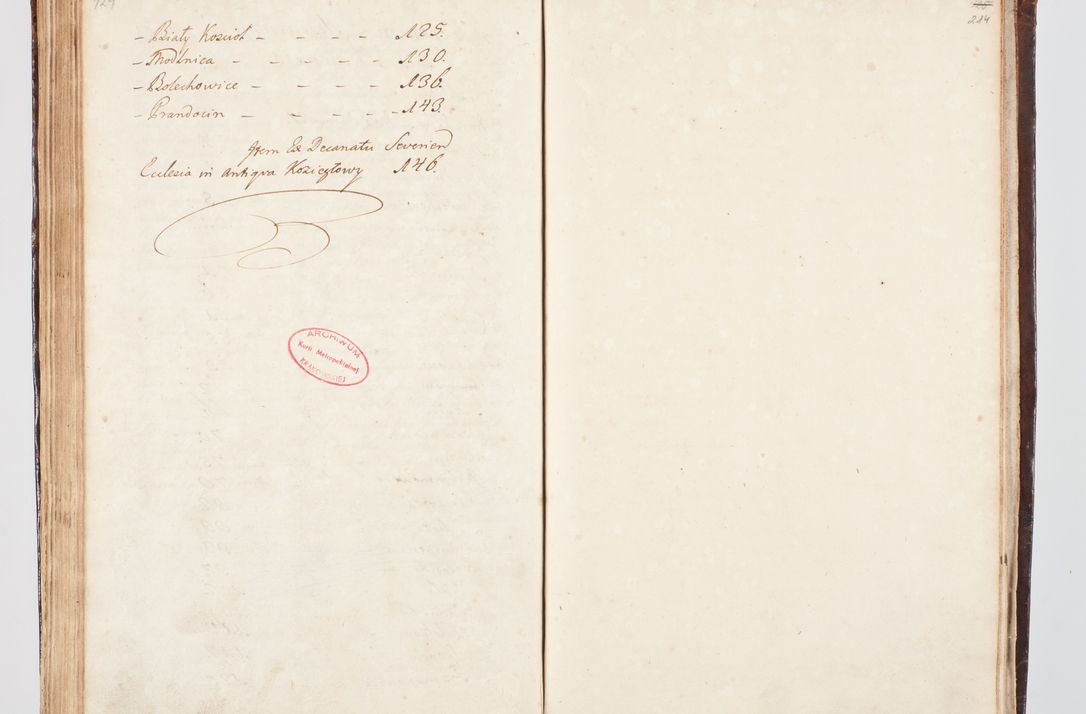 – Biały Kosciół – – – – 125.
– Modlnica – – – – – 130.
– Bolechowice – – – – 136.
– Prandocin – – – – – 143.
Item Ex Decanatu Severien
Ecclesia in antiqva Koziegłowy 146.
ARCHIWUM
Kurii Metropolitalnej
KRAKOWSKIEJ
214